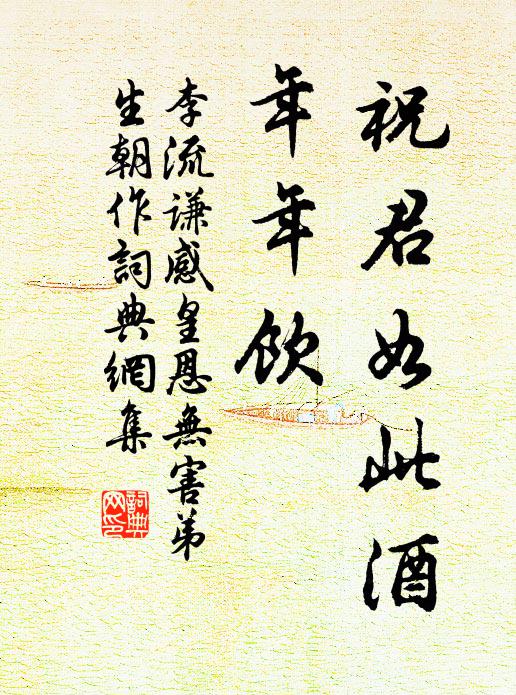 祝君如此酒
年年飲
李流謙感皇恩無害弟
生朝作詞典網集
詞典網印